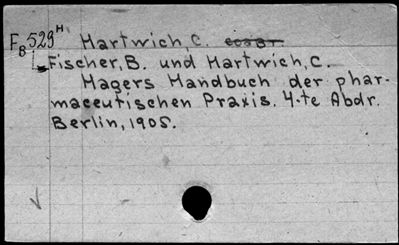 F8 529H Hartwich, C.
Fischer, B. und Hartwich, C.
Hagers Handbuch der phar-
maceutischen Praxis. 4-te Abdr.
Berlin, 1905.